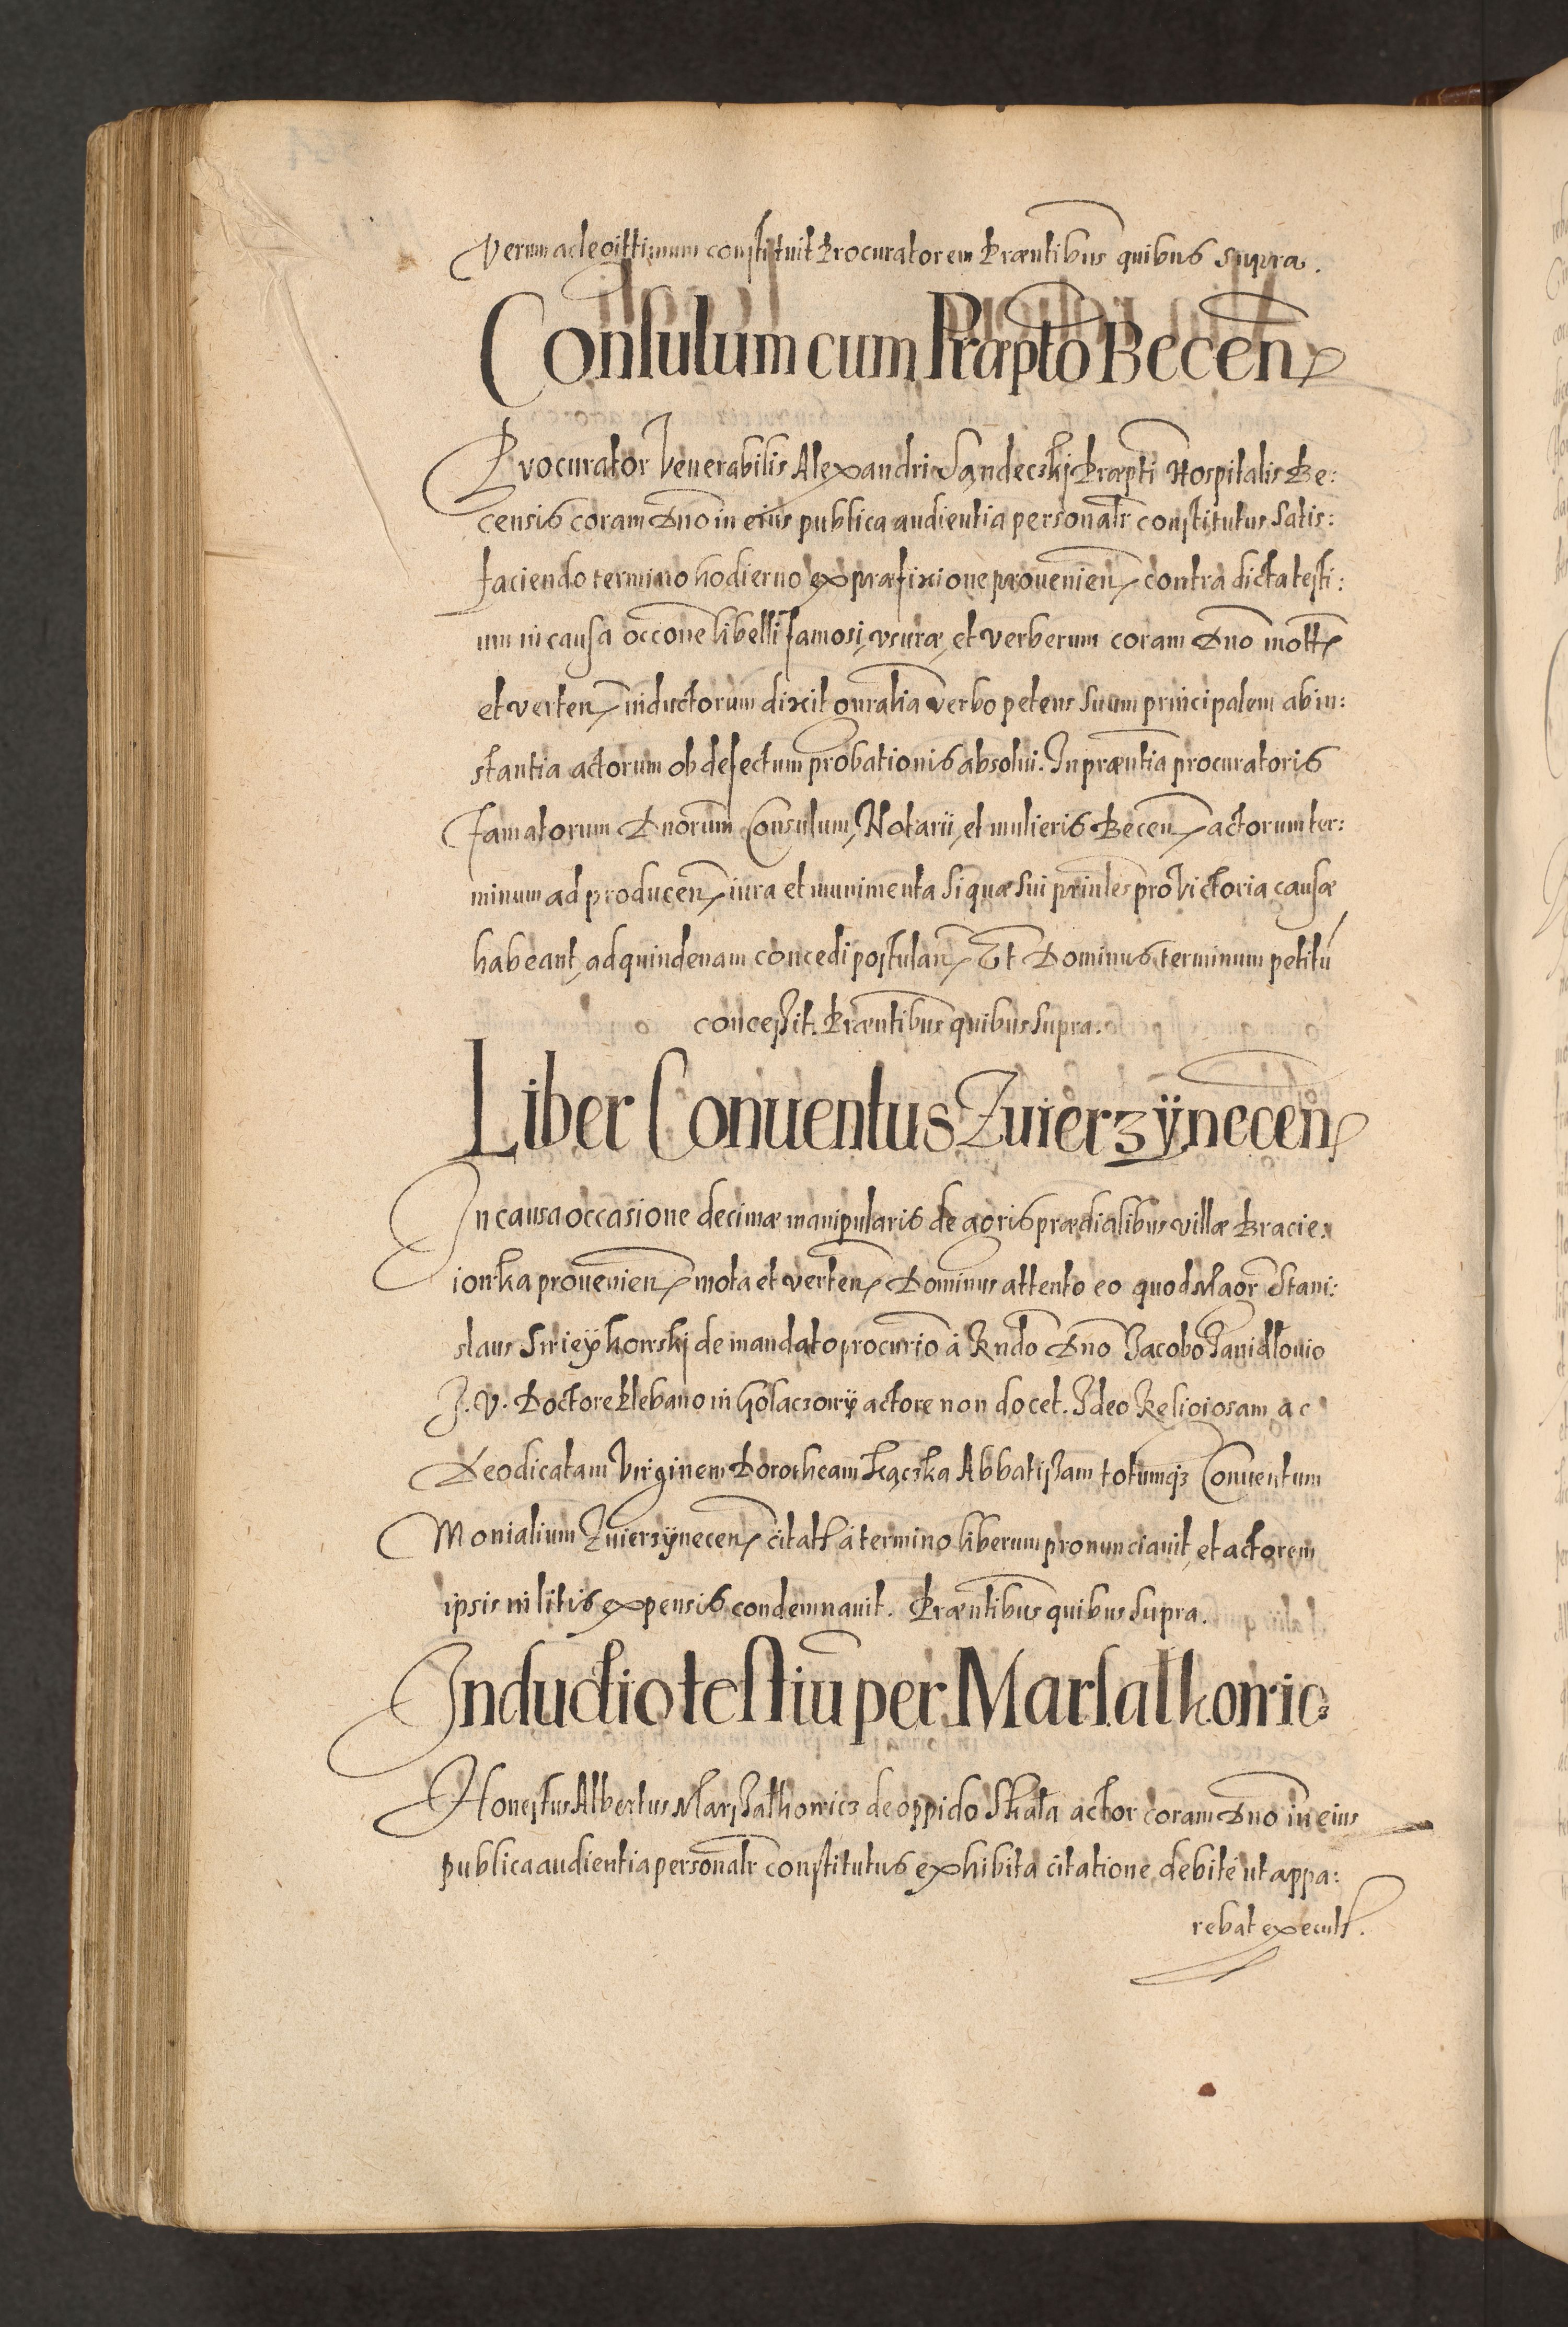 Verum ac legittimum constituit Procuratorem Præntibus quibus supra.
Consulum cum Præpto Becen
Procurator Venerabilis Alexandri Sandeczkj Præpti Hospitalis Be:
censis coram Dno in eius publica audientia personalr constitutus Satis:
faciendo termino hodierno ex præfixione prouenien contra dicta testi:
um in causa occone libelli famosi, vsuræ, et verberum coram Dno mott
et verten inductorum dixit gnralia verbo petens suum principalem ab in:
stantia actorum ob defectum probationis absolui. In præntia procuratoris
famatorum Dnorum Consulum, Notarii, et mulieris Becen actorum ter:
minum ad producen iura et munimenta si quæ sui prinles pro victoria causæ
habeant, ad quindenam concedi postulan Et Dominus terminum petitū
conceßit. Præntibus quibus supra.
Liber Conuentus Zwierzÿnecen
In causa occasione decimæ manipularis de agris prædialibus villæ Bracie:
iowka prouenien mota et verten Dominus attento eo quod Magr Stani:
slaus Swieÿkowskj de mandato procurio à Rndo Dno Jacobo Janidłouio
J. V. Doctore Plebano in Golaczowÿ actore non docet. Ideo Religiosam, ac
Deodicatam Virginem Dorotheam Kączka Abbatißam totumqз Conuentum
Monialium Zwierzÿnecen citatt à termino liberum pronunciauit, et actorem
ipsis in litis expensis condemnauit. Præntibus quibus supra.
Inductio testiū per Marsalkowic
Honestus Albertus Marßalkowicz de oppido Skała actor coram Dno in eius
publica audientia personalr constitutus exhibita citatione debite ut appa:
rebat executt.